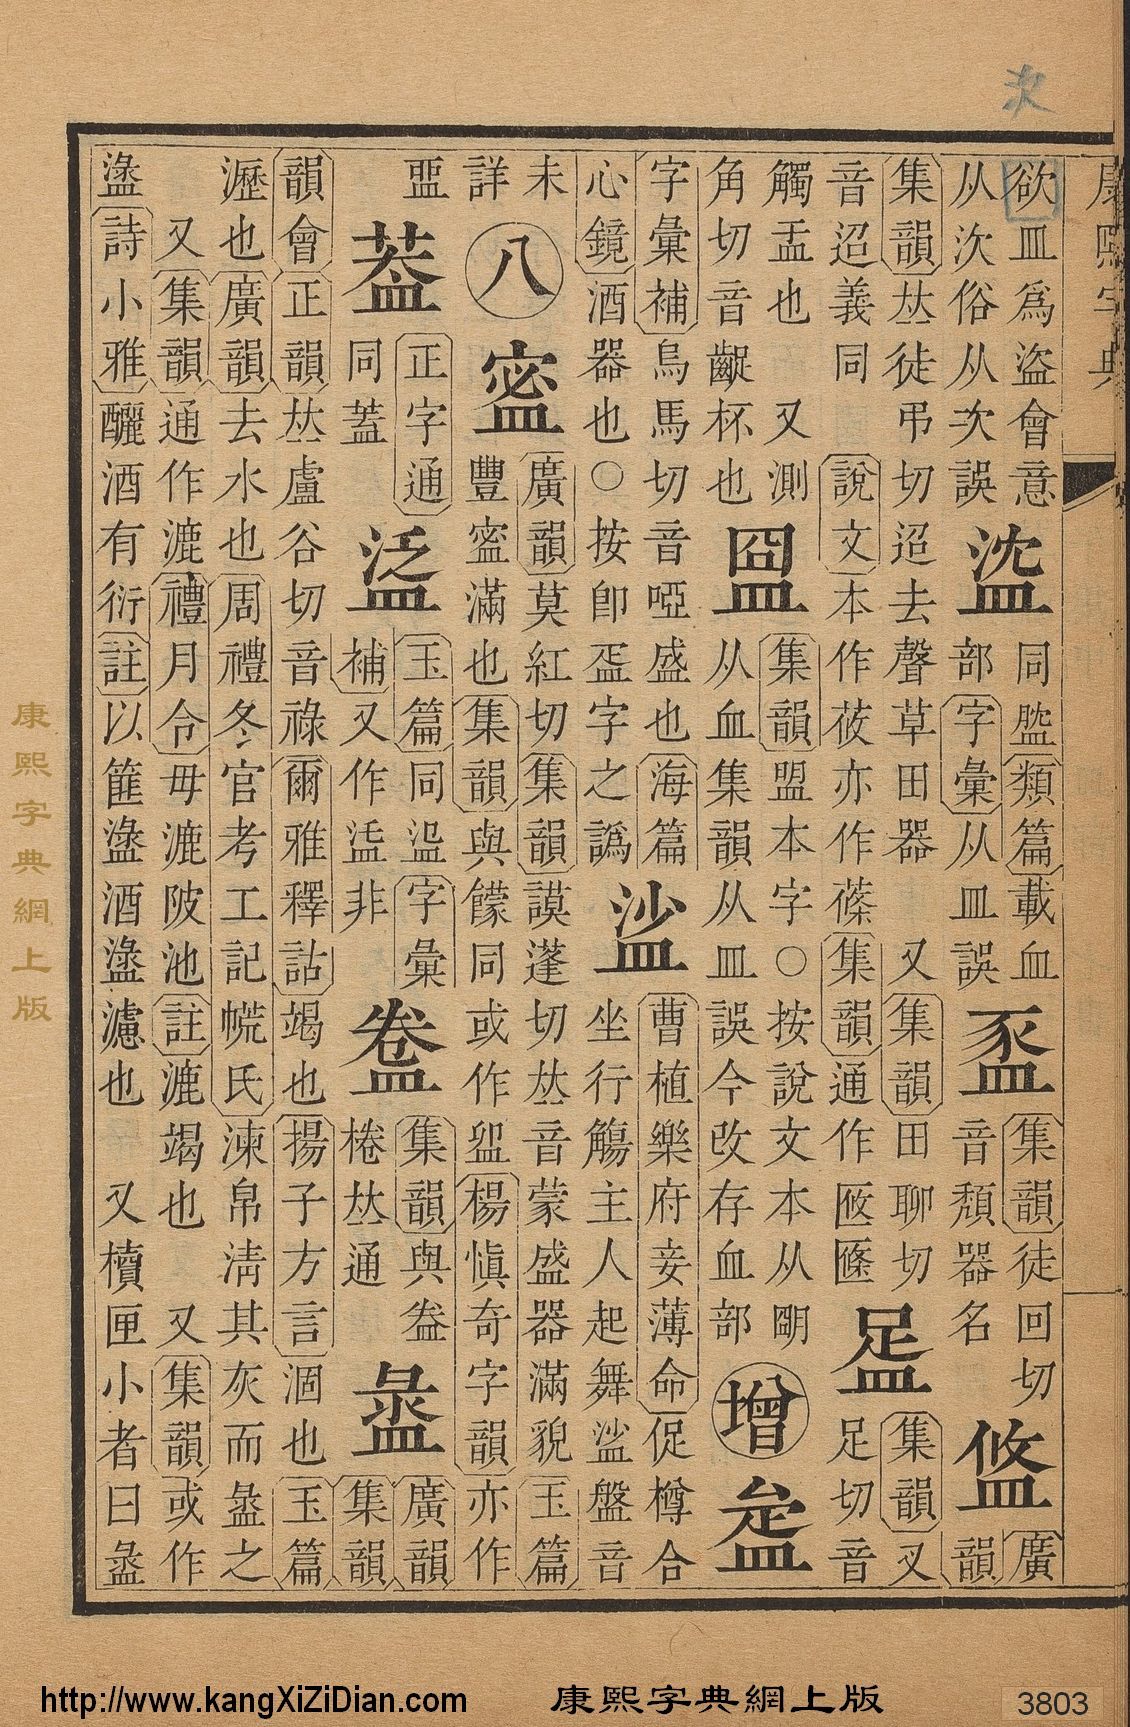 欲皿為盜會意
从㳄俗从次誤
同 類篇載血
部字彙从皿誤
集韻徒回切
音頹器名
廣
韻
集韻𠀤徒弔切迢去聲草田器 又集韻田聊切
音迢義同 說文本作莜亦作蓧集韻通作
集韻叉
足切音
觸盂也 又測
角切音齪杯也
集韻盟本字○按說文本从朙
从血集韻从皿誤今改存血部
增
字彙補烏馬切音啞盛也海篇
心鏡酒器也○按卽盃字之譌
曹植樂府妾薄命促樽合
坐行觴主人起舞 盤音
未
詳
八
廣韻莫紅切集韻謨蓬切𠀤音蒙盛器滿貌玉篇
豐 滿也集韻與饛同或作 楊愼奇字韻亦作
葢
正字通
同蓋
玉篇同 字彙
補又作 非
集韻與
棬𠀤通
盝
廣韻
集韻
韻會正韻𠀤盧谷切音祿爾雅釋詁竭也揚子方言涸也玉篇
瀝也廣韻去水也周禮冬官考工記㡆氏湅帛淸其灰而盝之
又集韻通作漉禮月令毋漉陂池註漉竭也 又集韻或作
詩小雅釃酒有衍註以篚 酒 濾也 又櫝匣小者曰盝
康熙字典
康熙字典網上版
http://www.kangXiZiDian.com 康熙字典網上版 3803